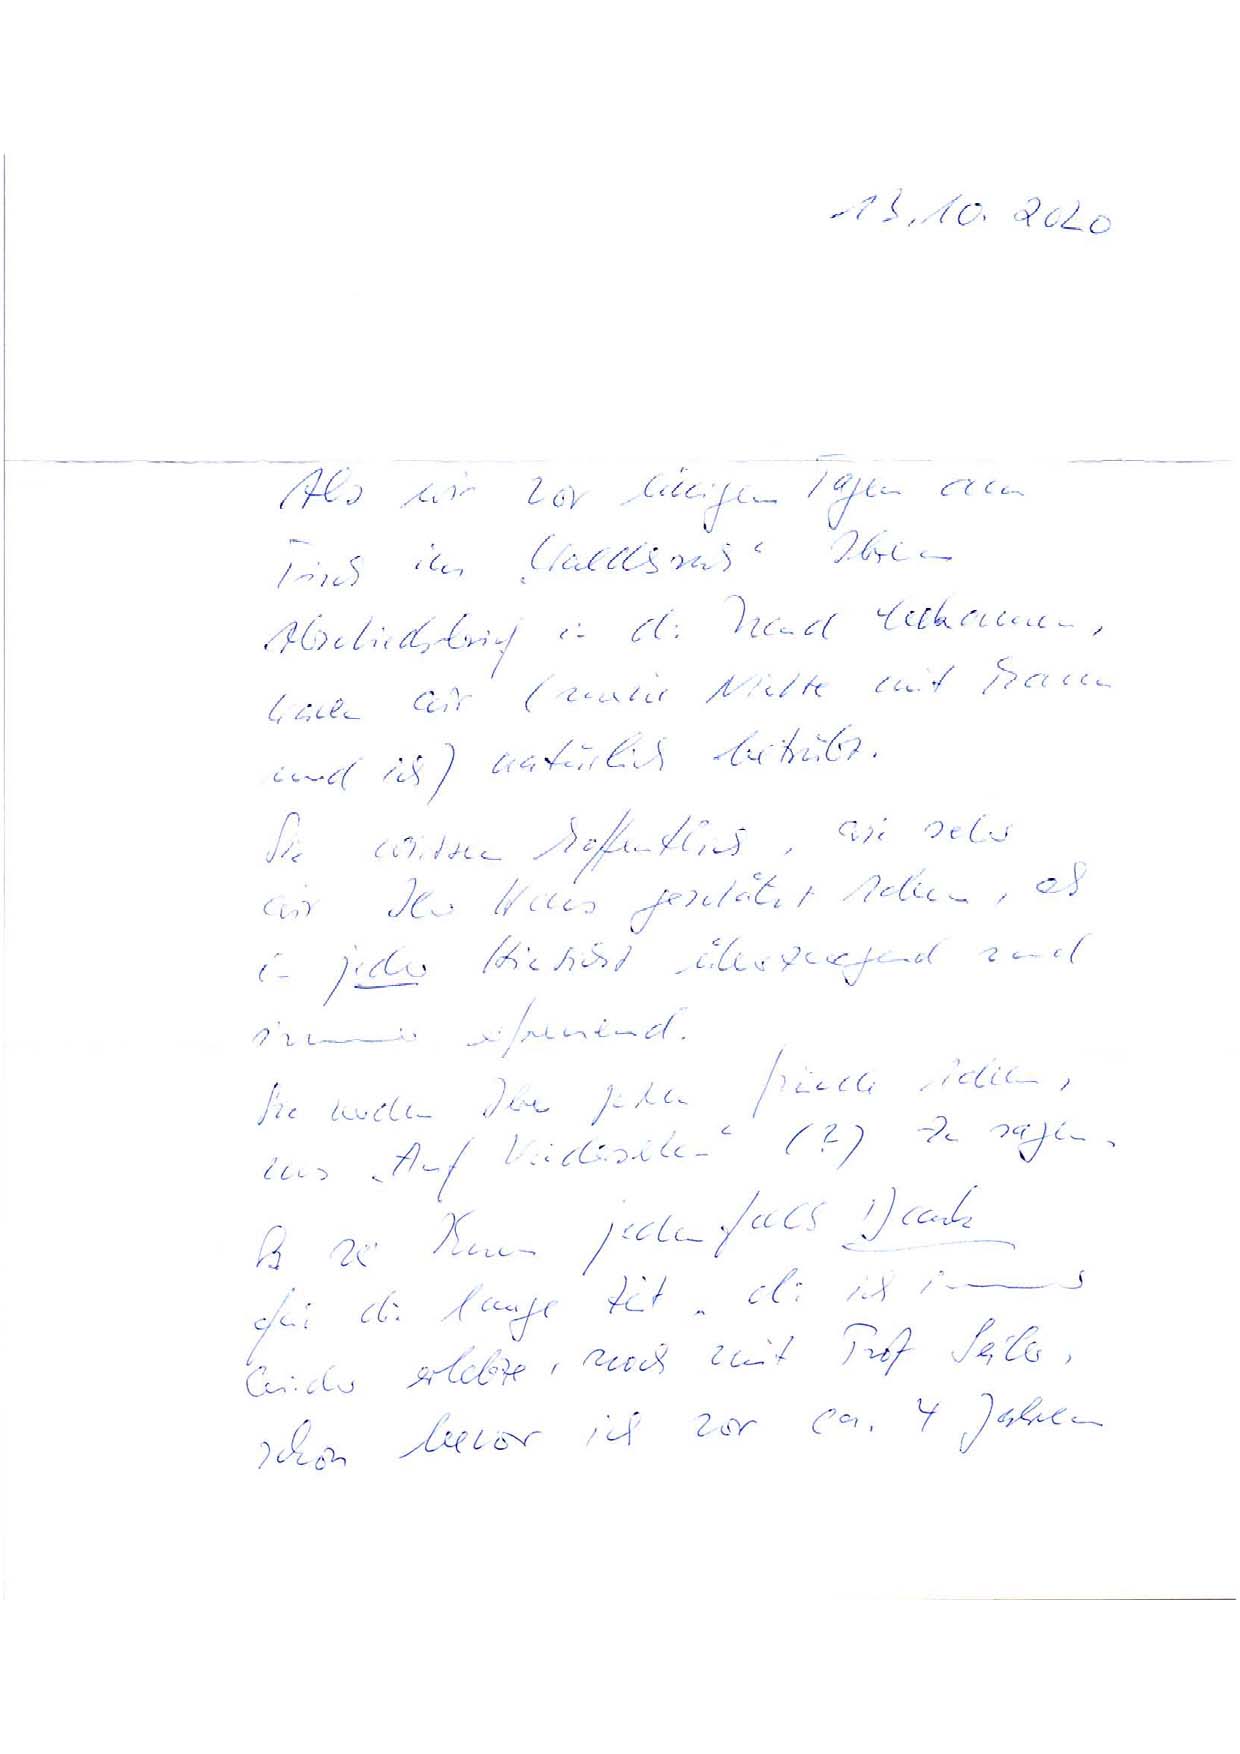 13.10.2020
Als wir vor einigen Tagen am
Tisch im „Waldhaus“ Ihren
Abschiedsbrief in die Hand bekamen,
waren wir (meine Nichte mit Mann
und ich) natürlich betrübt.
Sie wissen hoffentlich, wie sehr
wir Ihr Haus geschätzt haben, als
in jeder Hinsicht überzeugend und
immer erfreuend.
Sie werden Ihre guten Gründe haben,
uns „Auf Wiedersehen“ (?) zu sagen.
Es sei Ihnen jedenfalls Dank
für die lange Zeit, die ich immer
wieder erlebte, noch mit Prof Seiler,
schon bevor ich vor ca. 4 Jahren